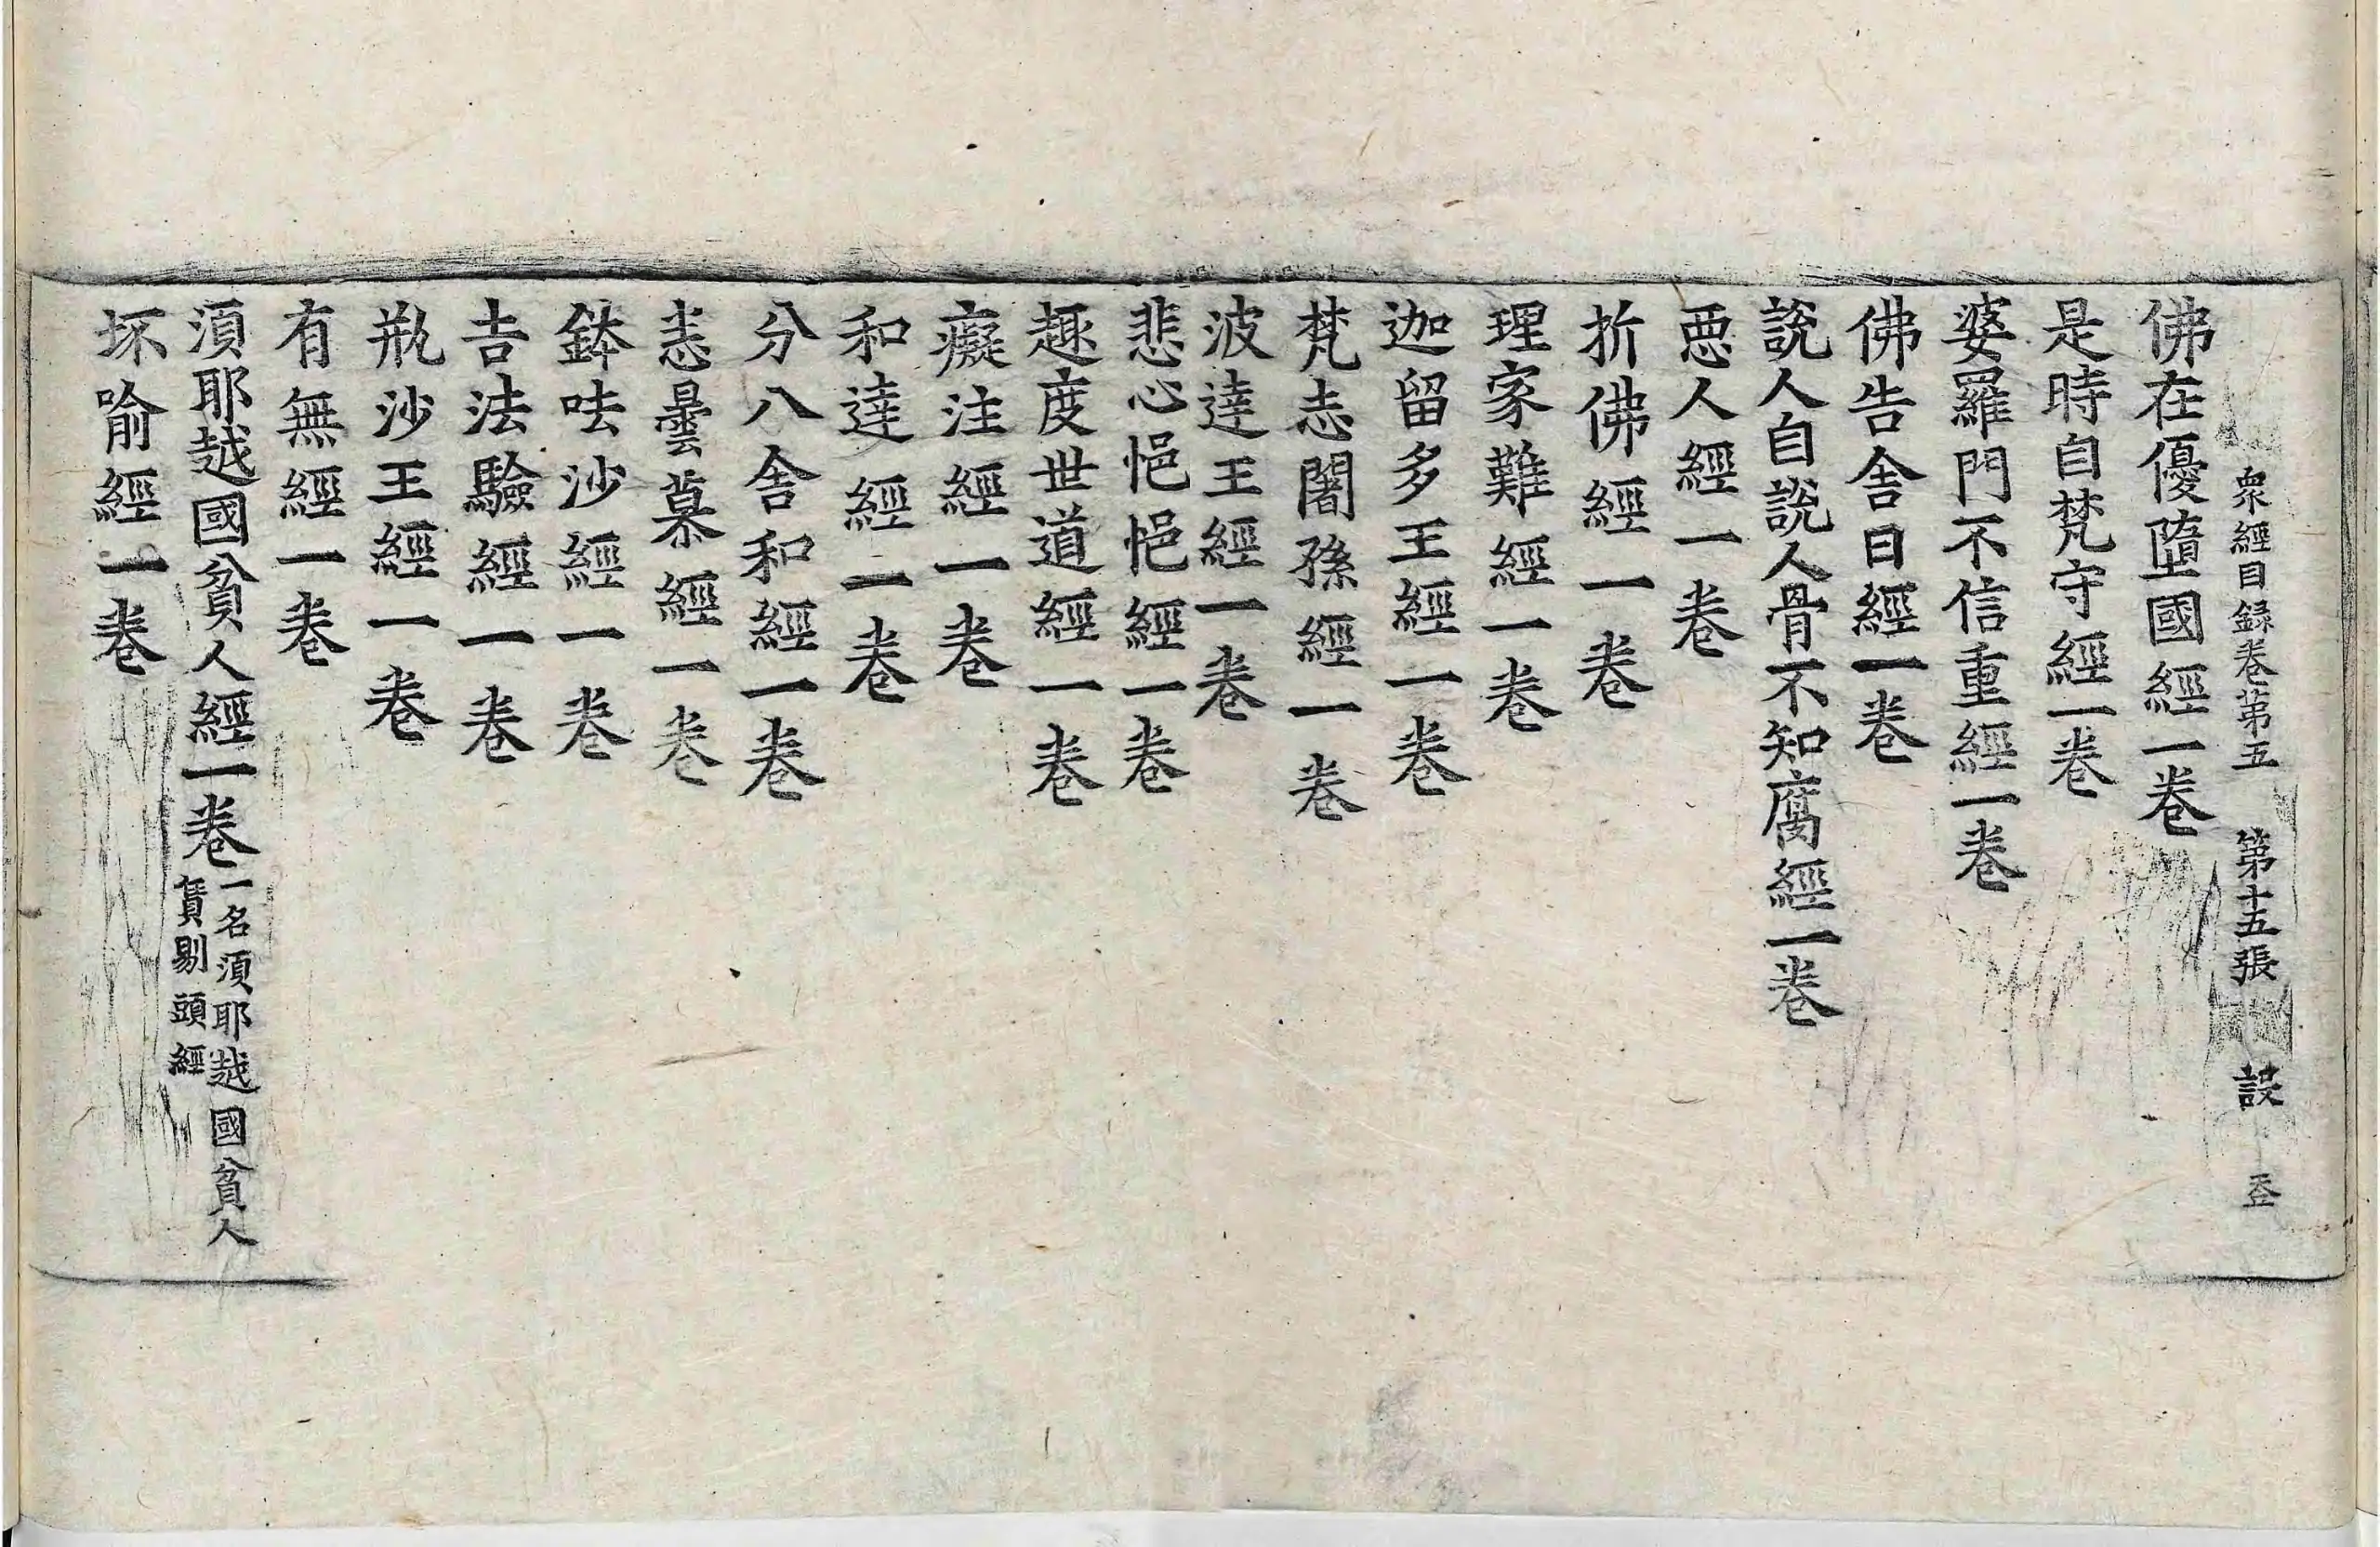 衆經目録卷第五　第十五張　設
佛在優墮國經一卷
是時自梵守經一卷
婆羅門不信重經一卷
佛告舍日經一卷
說人自說人骨不知腐經一卷
惡人經一卷
折佛經一卷
理家難經一卷
迦留多王經一卷
梵志闍孫經一卷
波達王經一卷
悲心悒悒經一卷
趣度世道經一卷
癡注經一卷
和達經一卷
分八舍和經一卷
恚曇慕經一卷
鉢呿沙經一卷
吉法驗經一卷
瓶沙王經一卷
有無經一卷
須耶越國貧人經一卷
一名須耶越國貧人
賃剔頭經
坏喻經一卷